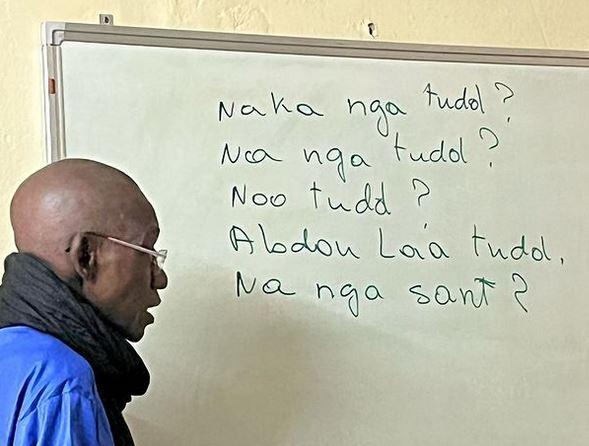 Naka nga tudd?
Noa nga tudd?
Noo tudd?
Abdou Laa tudd.
Na nga sant?